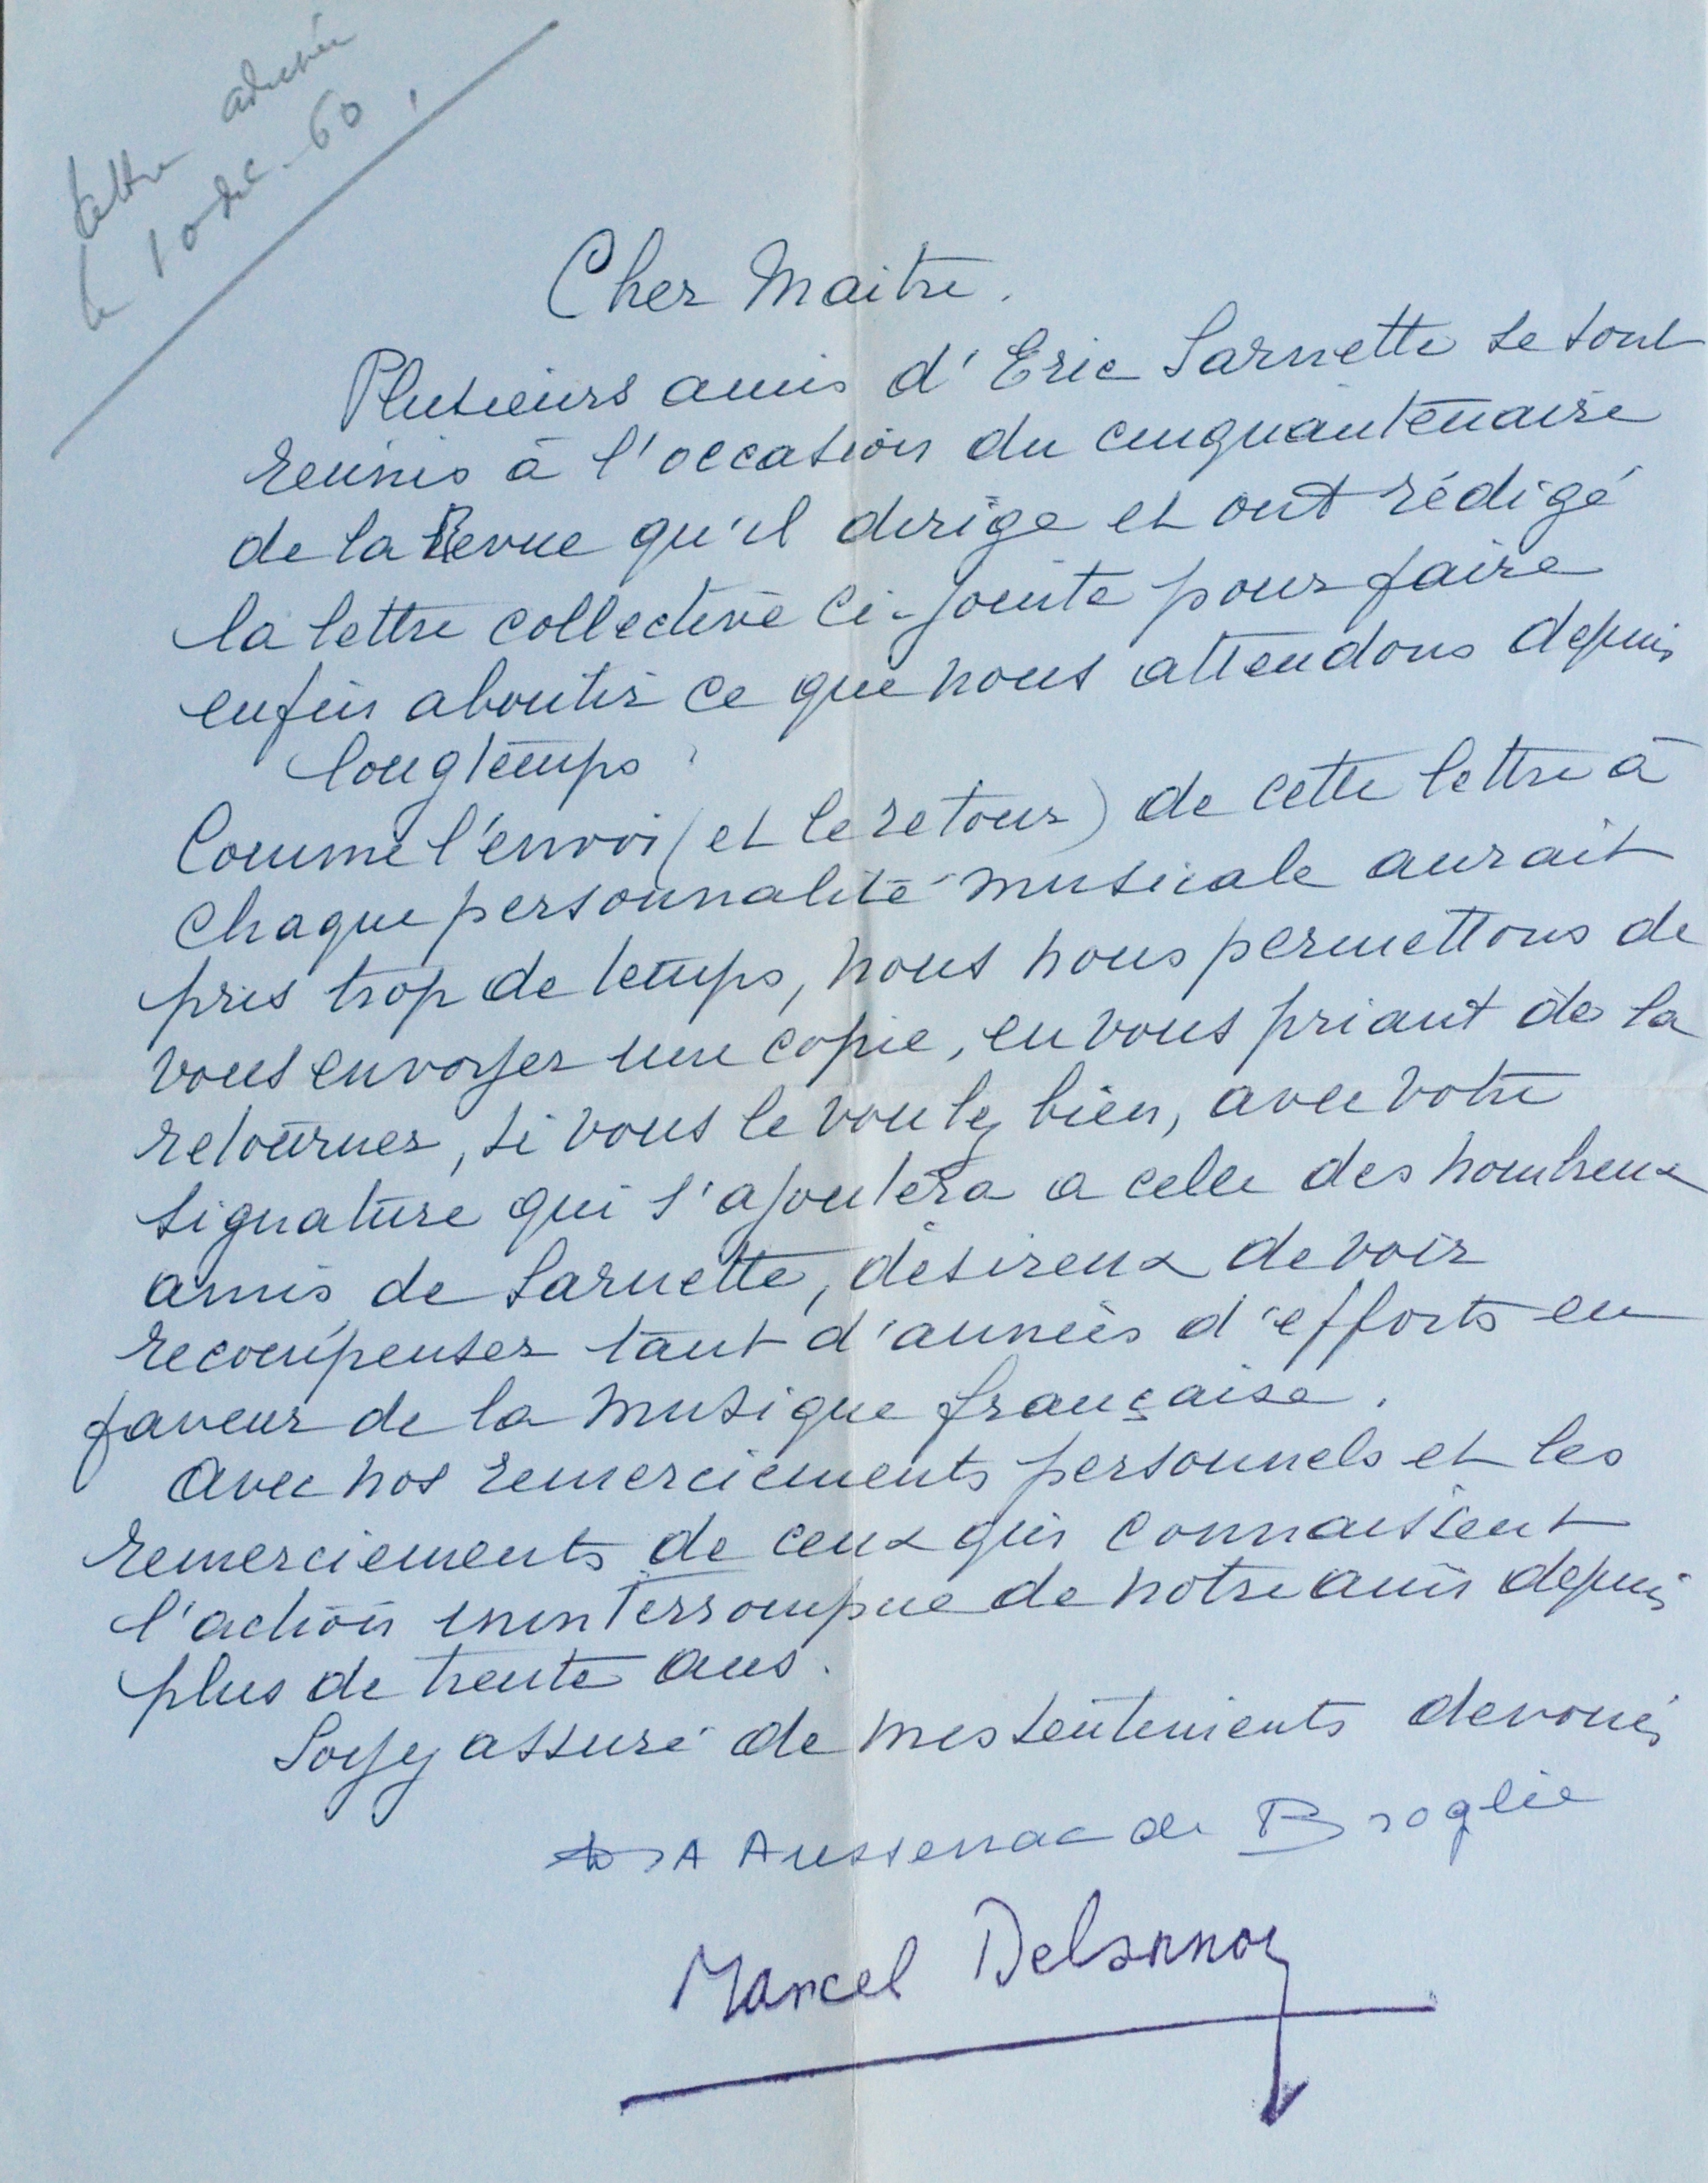 lettre adressée
le 10 déc. 60.
Cher Maitre.
Plusieurs amis d'Eric Sarnette se sont
reunis à l'occasion du cinquantenaire
de la Revue qu'il dirige et ont rédigé
la lettre collective ci-jointe pour faire
enfin aboutir ce que nous attendons depuis
longtemps.
Comme l'envoi (et le retour) de cette lettre à
chaque personnalité musicale aurait
pris trop de temps, nous nous permettons de
vous envoyer une copie, en vous priant de la
retourner, si vous le voulez bien, avec votre
signature qui s'ajoutera a celle des nombreux
amis de Sarnette, désireux de voir
recompenser tant d'années d'efforts en
faveur de la musique française.
Avec nos remerciements personnels et les
remerciements de ceux qui connaissent
l'action ininterrompue de notre ami depuis
plus de trente ans.
Soyez assuré de mes sentiments devoués
A Aussenac de Broglie
Marcel Delannoy